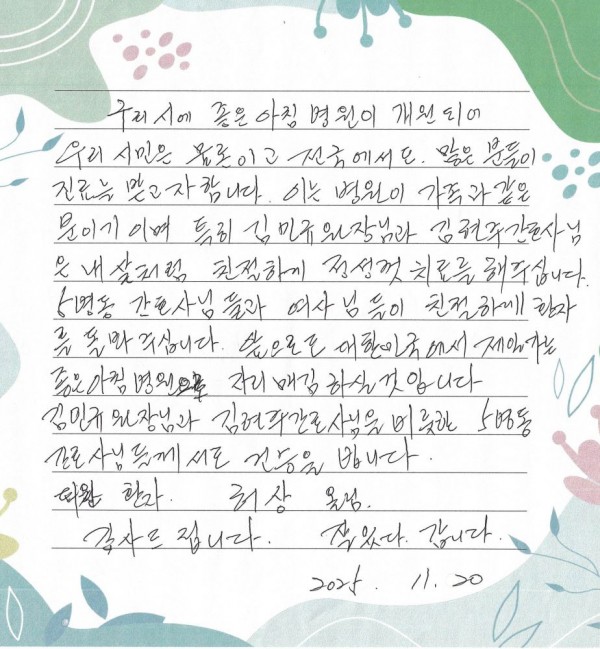 구리시에 좋은아침 병원이 개원되어
우리 시민은 물론이고 전국에서도. 많은 분들이
진료를 받고자 합니다. 이는 병원이 가족과 같은
분이기 이며 특히 김민규원장님과 김현주간호사님
은 내 살처럼 친절하게 정성껏 치료를 해주십니다.
5병동 간호사님들과 여사님들이 친절하에 환자
를 돌봐 주십니다. 앞으로도 대한민국에서 제일가는
좋은아침병원으로 자리매김 하실것입니다
김민규원장님과 김현주간호사님을 비릇한 5병동
간호사님들께서도 건승을 빕니다.
퇴원 환자. 허상 올림.
감사드립니다. 잘있다. 갑니다.
2025. 11. 20